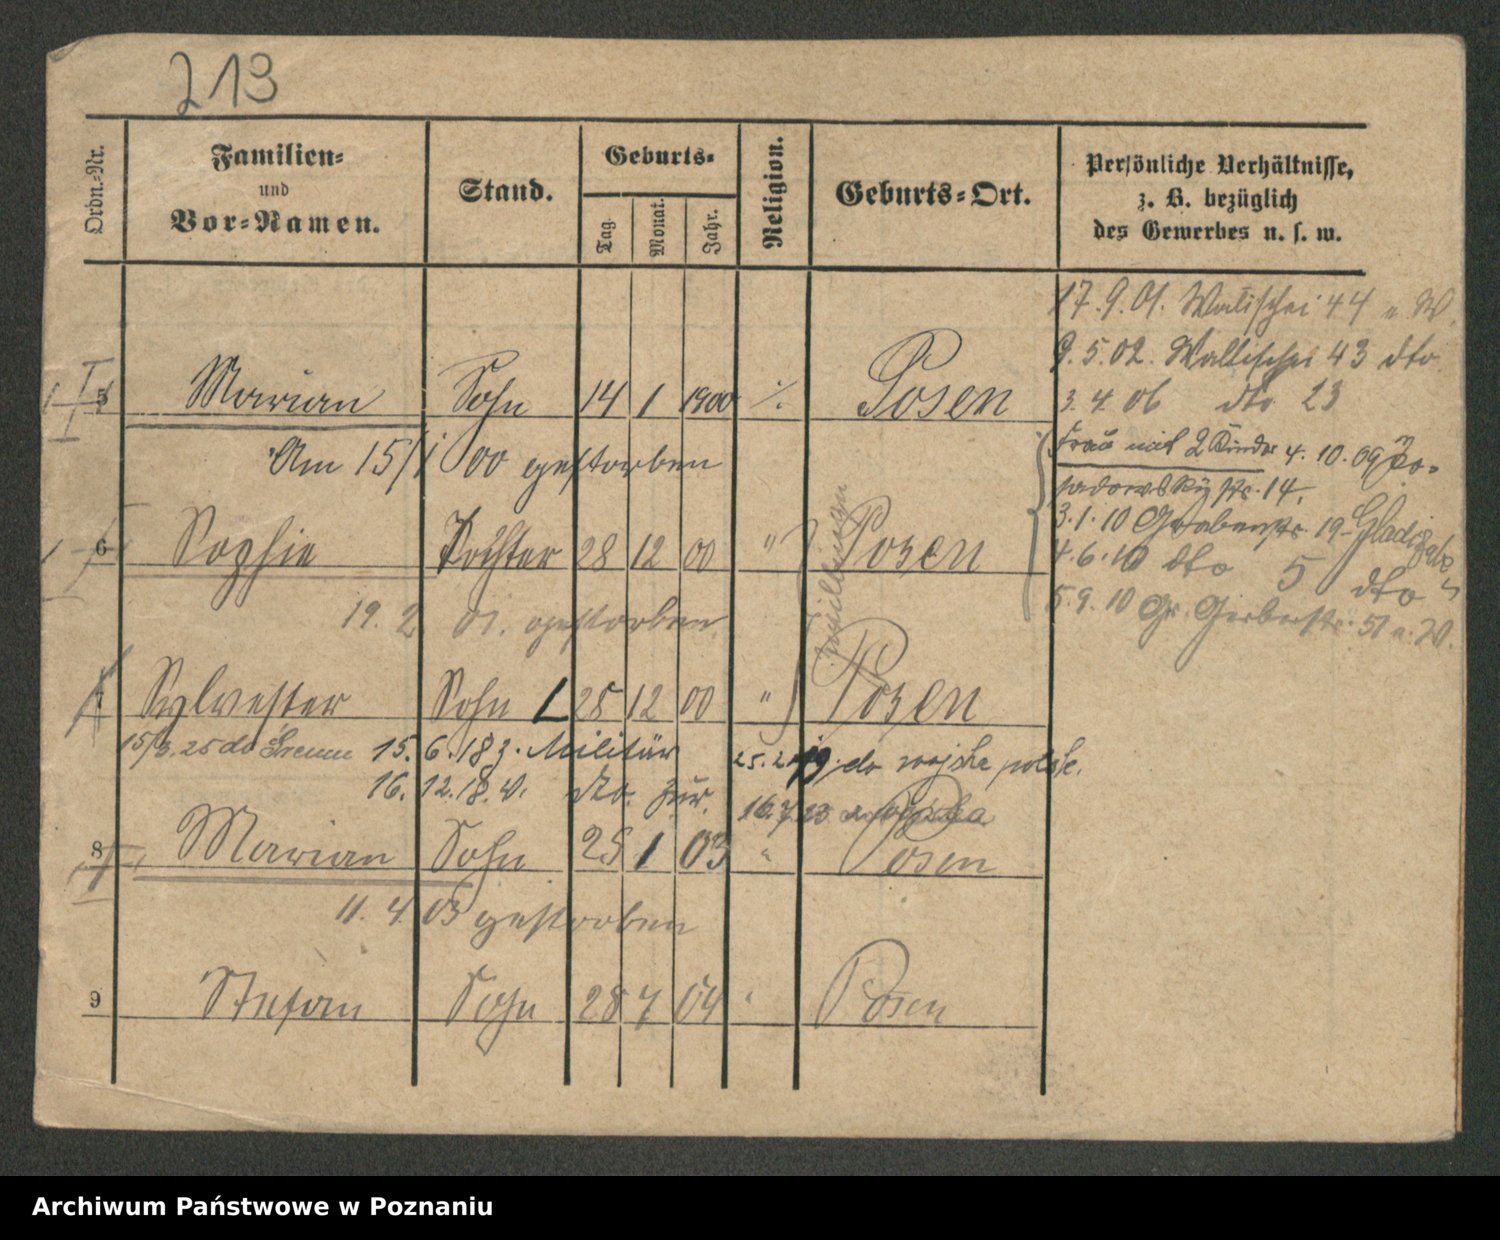 213
Ordn.-Nr.
Familien-
und
Vor-Namen.
Stand.
Geburts-
Tag.
Monat.
Jahr.
Religion.
Geburts-Ort.
Persönliche Verhältnisse,
z. B. bezüglich
des Gewerbes u. s. w.
17.9.01. Wallischei 44 u. W.
9.5.02. Wallischei 43 dto
3.4.06 dto 23
5 Marian Sohn 14 1 1900 ./. Posen
Am 15/1 00 gestorben
Frau mit 2 Kinder 4.10.09 Po-
sadowskystr. 14.
3.1.10 Grabenstr. 19
4.6.10 dto 5 dto
5.9.10 Gr. Gerberstr. 51 u. W.
6 Sophie Tochter 28 12 00 " Posen
Zwillinge
19.2 01. gestorben
7 Sylvester Sohn 28 12 00 " Posen
15/3.25 do Śremu 15.6.18 z. Militär 25.2.19 do wojska polsk.
16.12.18. v. dto. zur. 16.7.23 z wojska
8 Marian Sohn 25 1 03 " Posen
11.4.03 gestorben
9 Stefan Sohn 28 7 04 " Posen
Archiwum Państwowe w Poznaniu